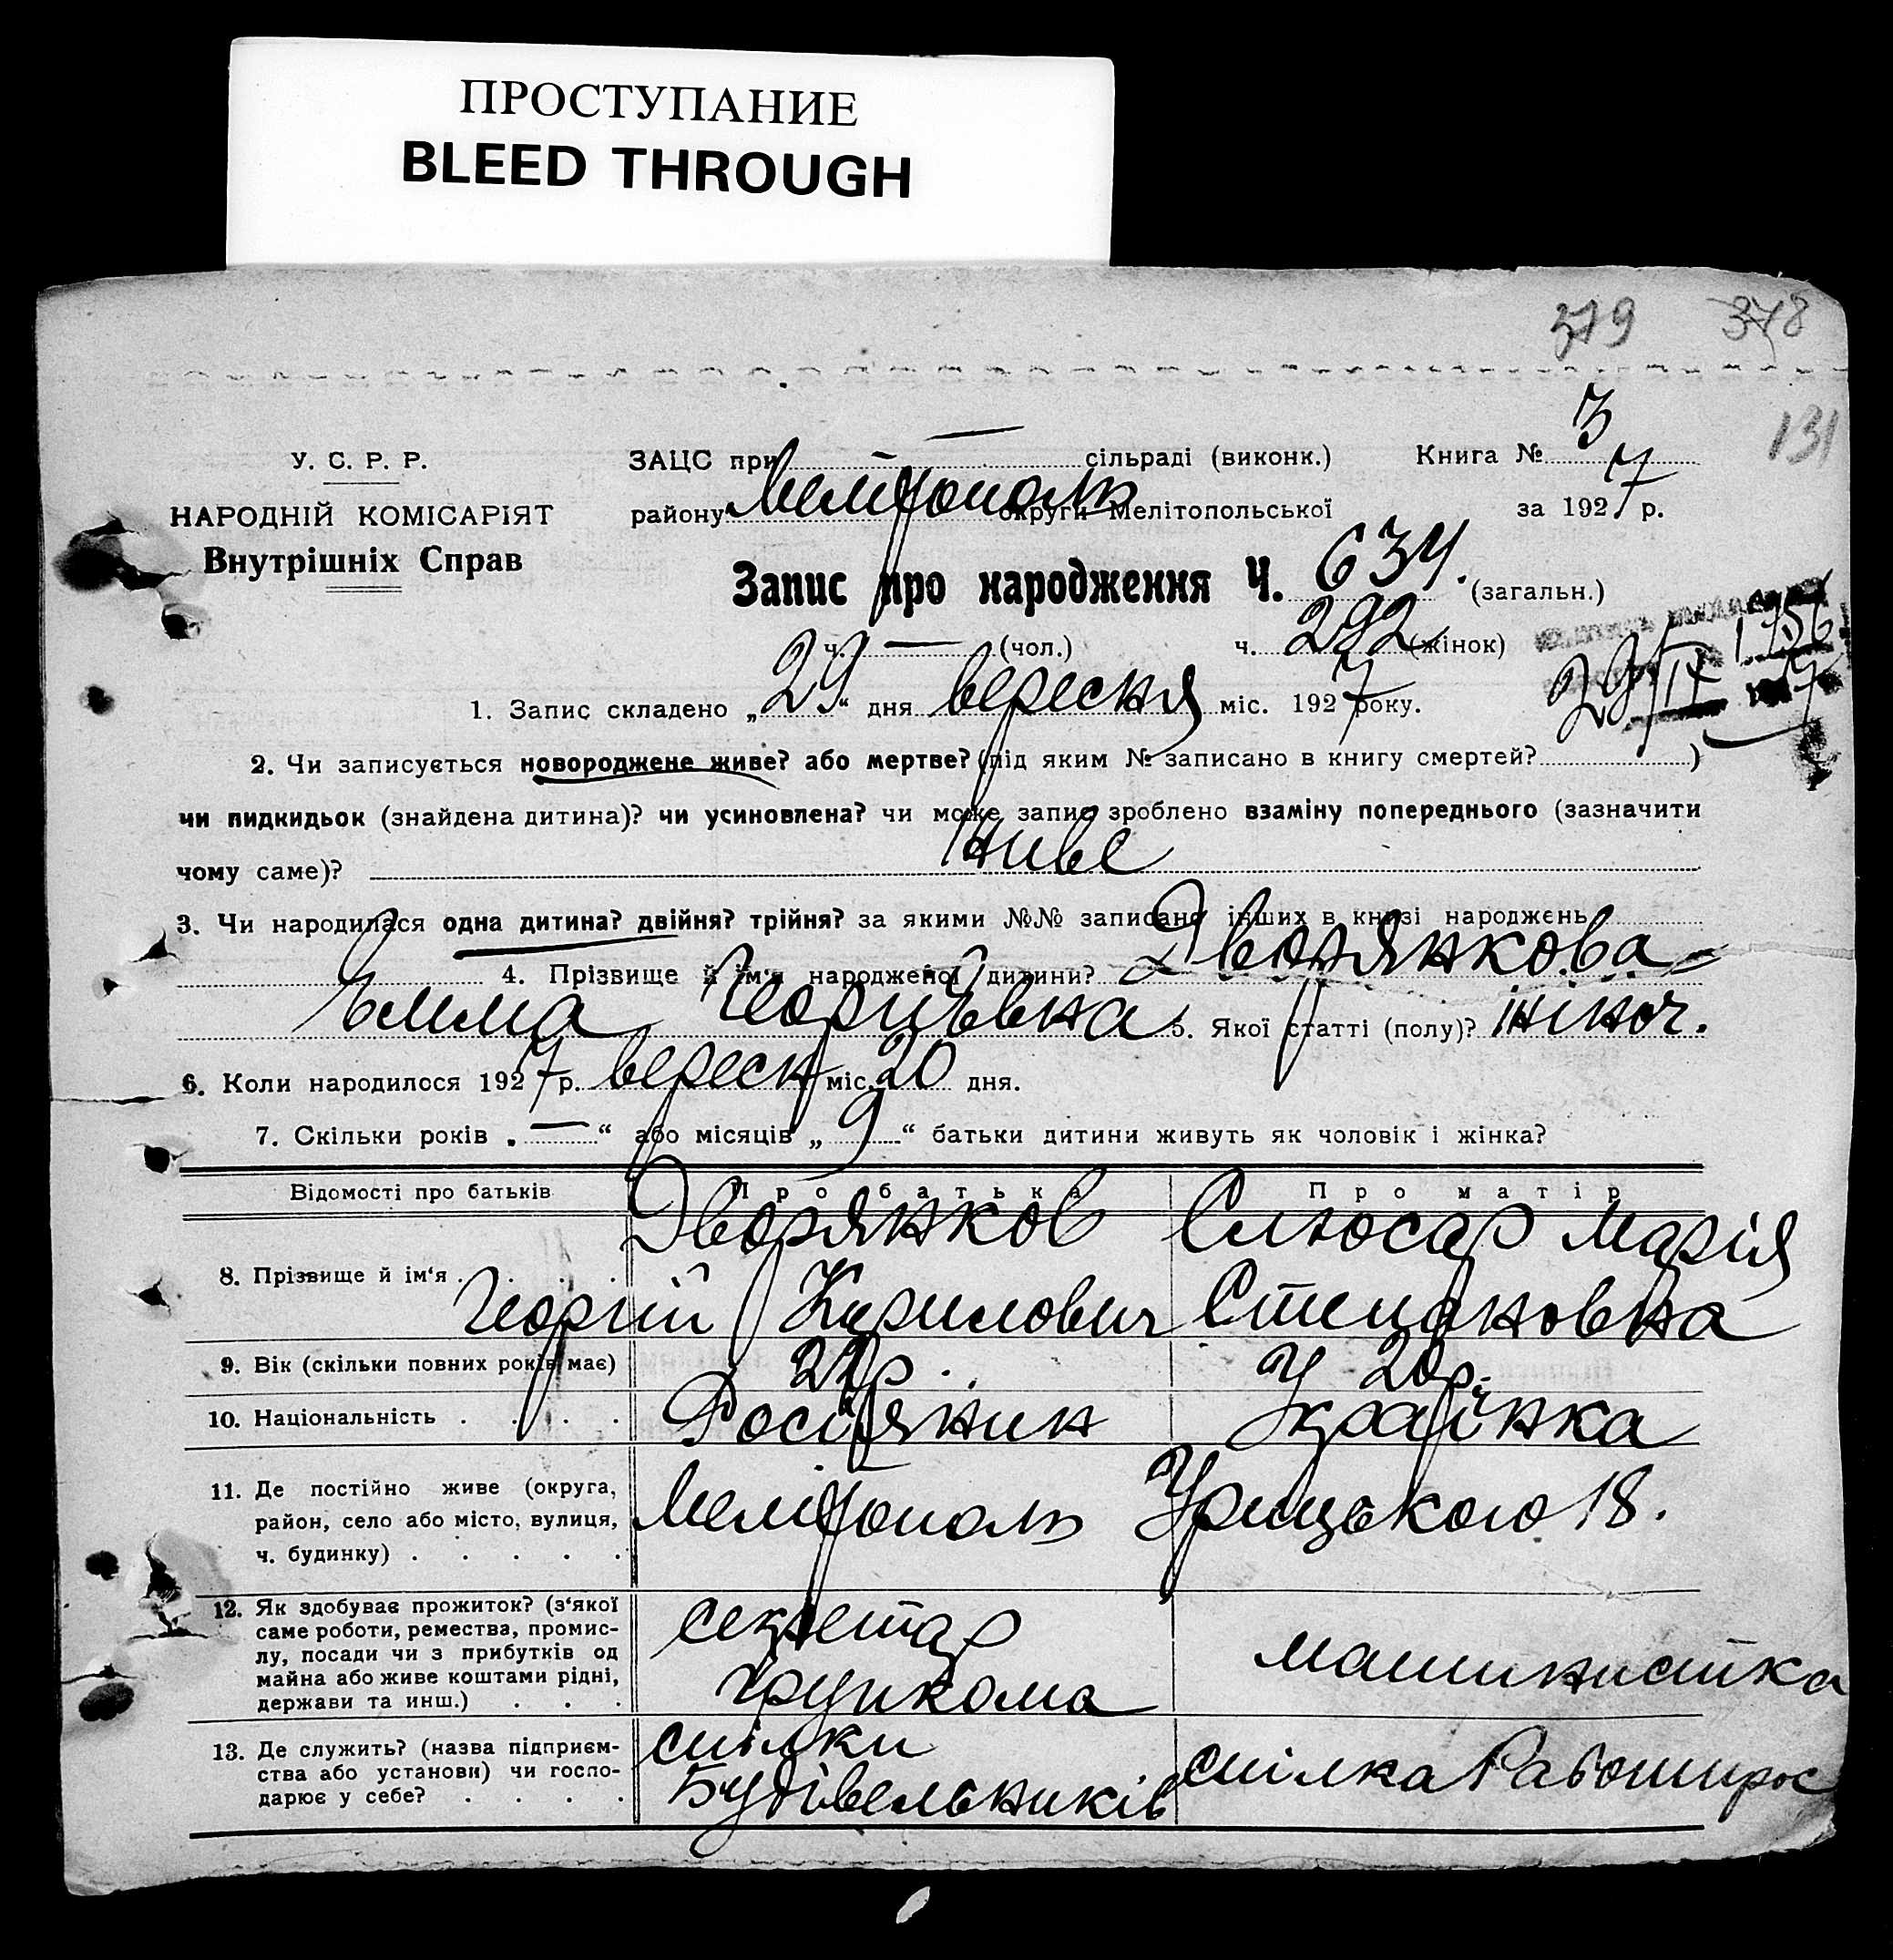 ПРОСТУПАНИЕ
BLEED THROUGH
379 378
131
У. С. Р. Р.
НАРОДНІЙ КОМІСАРІЯТ
Внутрішніх Справ
ЗАЦС при — сільраді (виконк.) Книга № 3
району Мелітополь округи Мелітопольської за 1927 р.
Запис про народження Ч. 634. (загальн.)
ч. — (чол.) ч. 292 (жінок)
1. Запис складено „29“ дня вересня міс. 1927 року.
2. Чи записується новороджене живе? або мертве? (під яким № записано в книгу смертей? )
чи пидкидьок (знайдена дитина)? чи усиновлена? чи може запис зроблено взаміну попереднього (зазначити
чому саме)? живе
3. Чи народилася одна дитина? двійня? трійня? за якими №№ записано інших в книзі народжень
4. Прізвище й ім‘я народженої дитини? Дворянкова
Емма Георгіївна 5. Якої статті (полу)? жіноч.
6. Коли народилося 1927 р. вересн міс. 20 дня.
7. Скільки років „—“ або місяців „9“ батьки дитини живуть як чоловік і жінка?
Відомості про батьків Про батька Про матір
8. Прізвище й ім‘я . . . . Дворянков Слюсар Марія
Георгій Кирилович Степановна
9. Вік (скільки повних років має) 22р. 20р.
10. Національність . . . . Росіянин Українка
11. Де постійно живе (округа,
район, село або місто, вулиця,
ч. будинку) . . . . .
Мелітополь Урицького 18.
12. Як здобуває прожиток? (з‘якої
саме роботи, ремества, промис-
лу, посади чи з прибутків од
майна або живе коштами рідні,
держави та инш.) . . .
секретар
Групкома
машинистка
13. Де служить? (назва підприєм-
ства або установи) чи госпо-
дарює у себе? . . . .
спілки
Будівельників
спілка